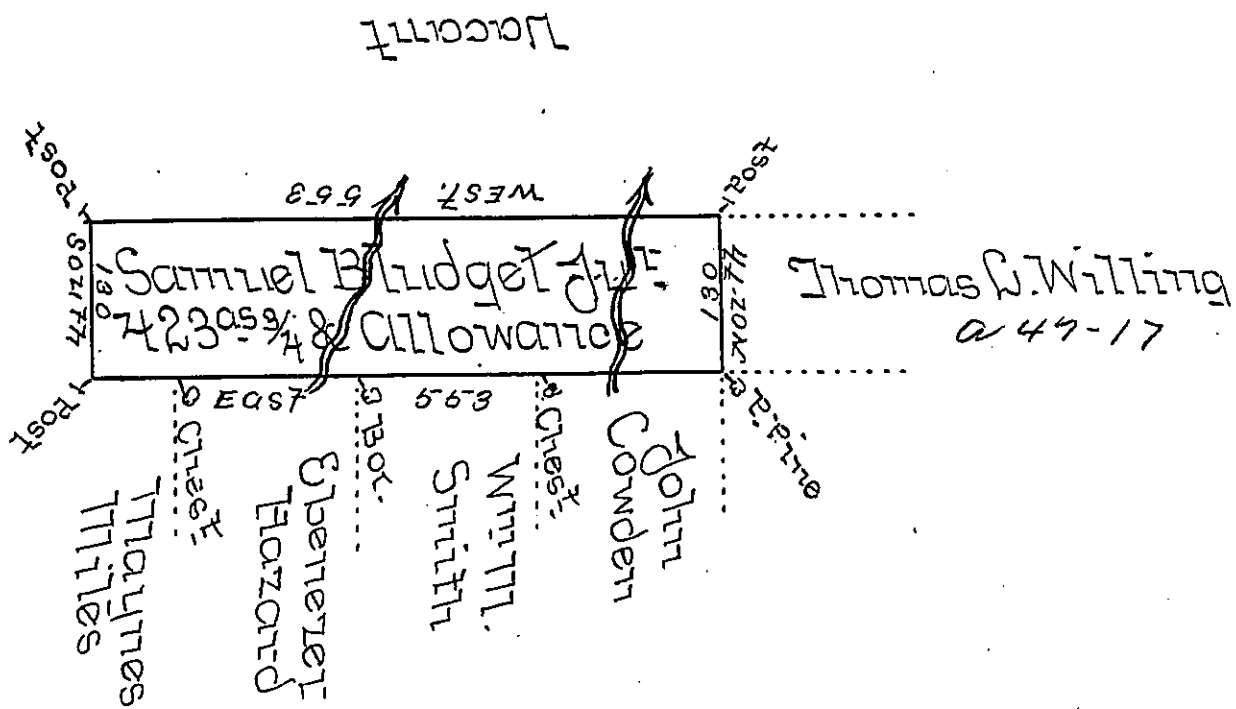 Vacant
Post
553 WEST.
Post
SOUTH
130
Samuel Bludget Jur.
423 as 3/4 & allowance
130
NORTH
Thomas L. Willing
a 49-17
Post
EAST 553
Chest.
3 Bor.
Chest.
3 P.Pine
Maynes
Miles
Ebenezer
Hazard
Wm. M.
Smith
John
Cowden